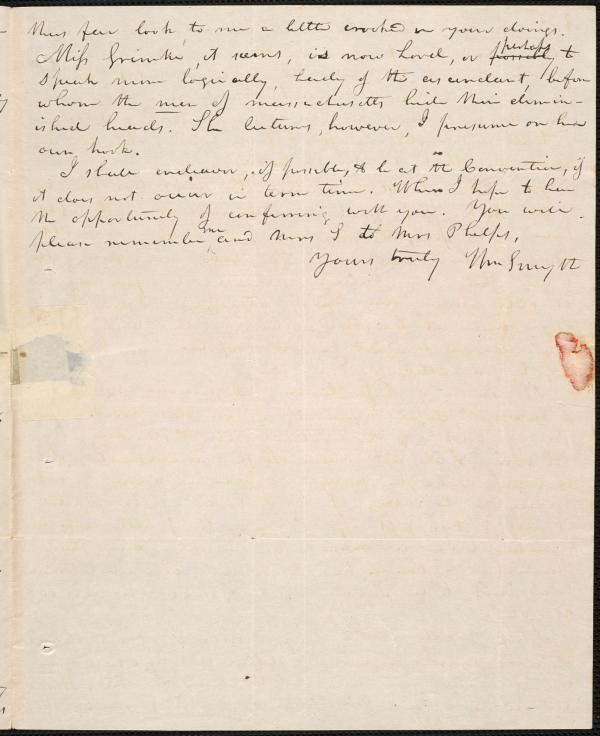 thus far look to me a little crooked in your doings.
Miss Grimke, it seems, is now Lord, or perhaps possibly to
speak more logically, Lady of the ascendant, before
whom the men of Massachusetts hide their dimin-
ished heads. She lectures, however, I presume on her
own hook.
I shall endeavor, if possible, to be at the Convention, if
it does not occur in term time. When I hope to have
the opportunity of conferring with you. You will
please remember me and Mrs S to Mrs Phelps,
Yours truly Wm Smyth